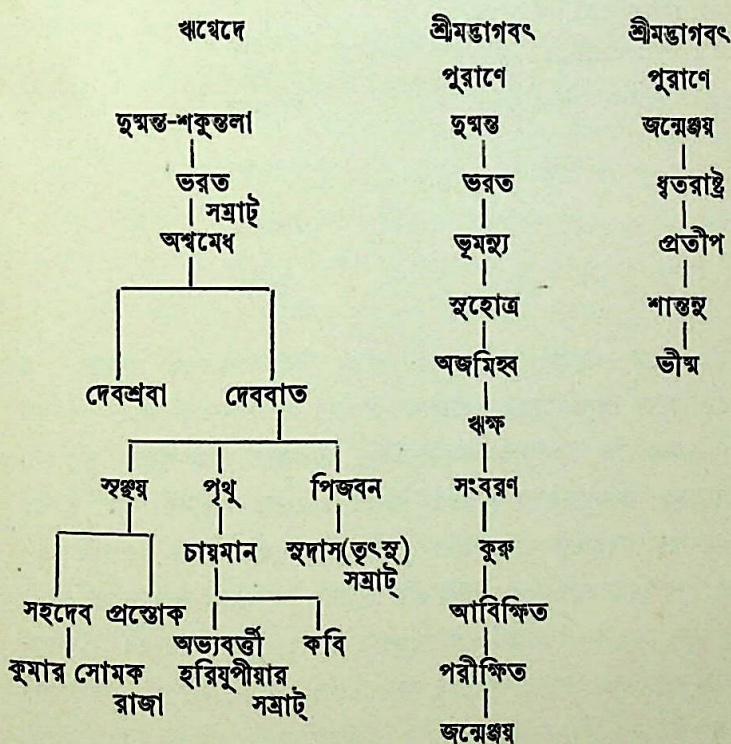 ঋগ্বেদে
দুষ্মন্ত-শকুন্তলা
ভরত
সম্রাট্
অশ্বমেধ
দেবশ্রবা দেববাত
সৃঞ্জয় পৃথু পিজবন
চায়মান সুদাস(তৃৎসু)
সম্রাট্
সহদেব প্রস্তোক
অভ্যবর্ত্তী কবি
কুমার সোমক হরিযুপীয়ার
রাজা সম্রাট্
শ্রীমদ্ভাগবৎ
পুরাণে
দুষ্মন্ত
ভরত
ভূমন্যু
সুহোত্র
অজমিহ্ব
ঋক্ষ
সংবরণ
কুরু
আবিক্ষিত
পরীক্ষিত
জন্মেঞ্জয়
শ্রীমদ্ভাগবৎ
পুরাণে
জন্মেঞ্জয়
ধৃতরাষ্ট্র
প্রতীপ
শান্তনু
ভীষ্ম